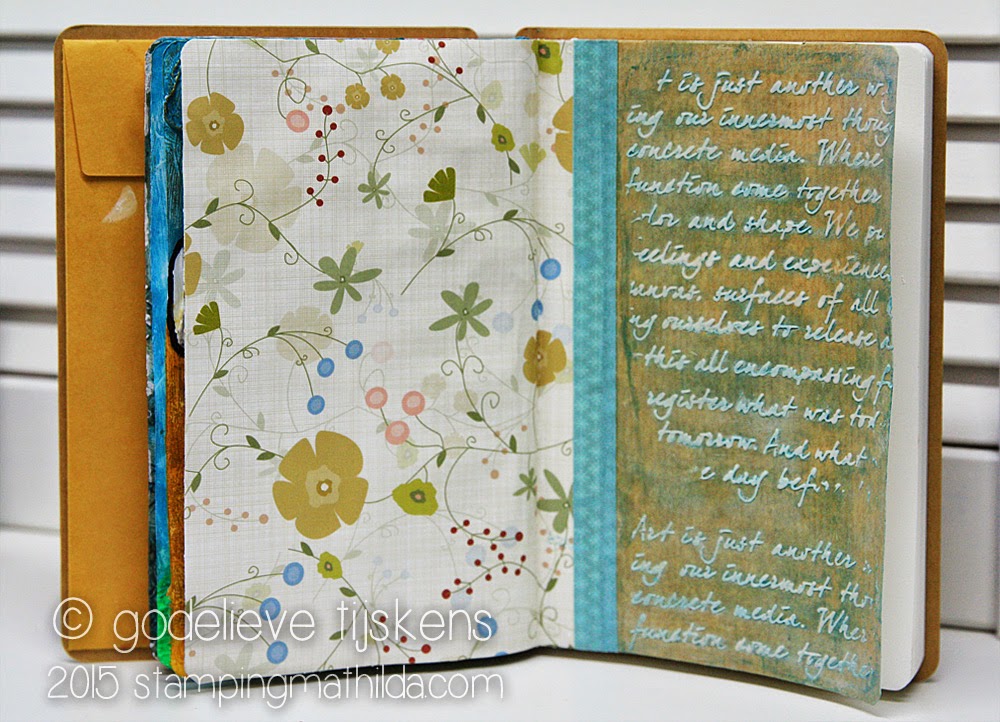 t is just another w
ing our innermost thou
concrete media. Where
function come together
lor and shape. We
eelings and experience
canvas, surfaces of all
ng ourselves to release a
this all encompassing f
register what was tod
tomorrow. And what
e day bef
Art is just another
ing our innermost tho
concrete media. Wher
function come together
© godelieve tijskens
2015 stampingmathilda.com